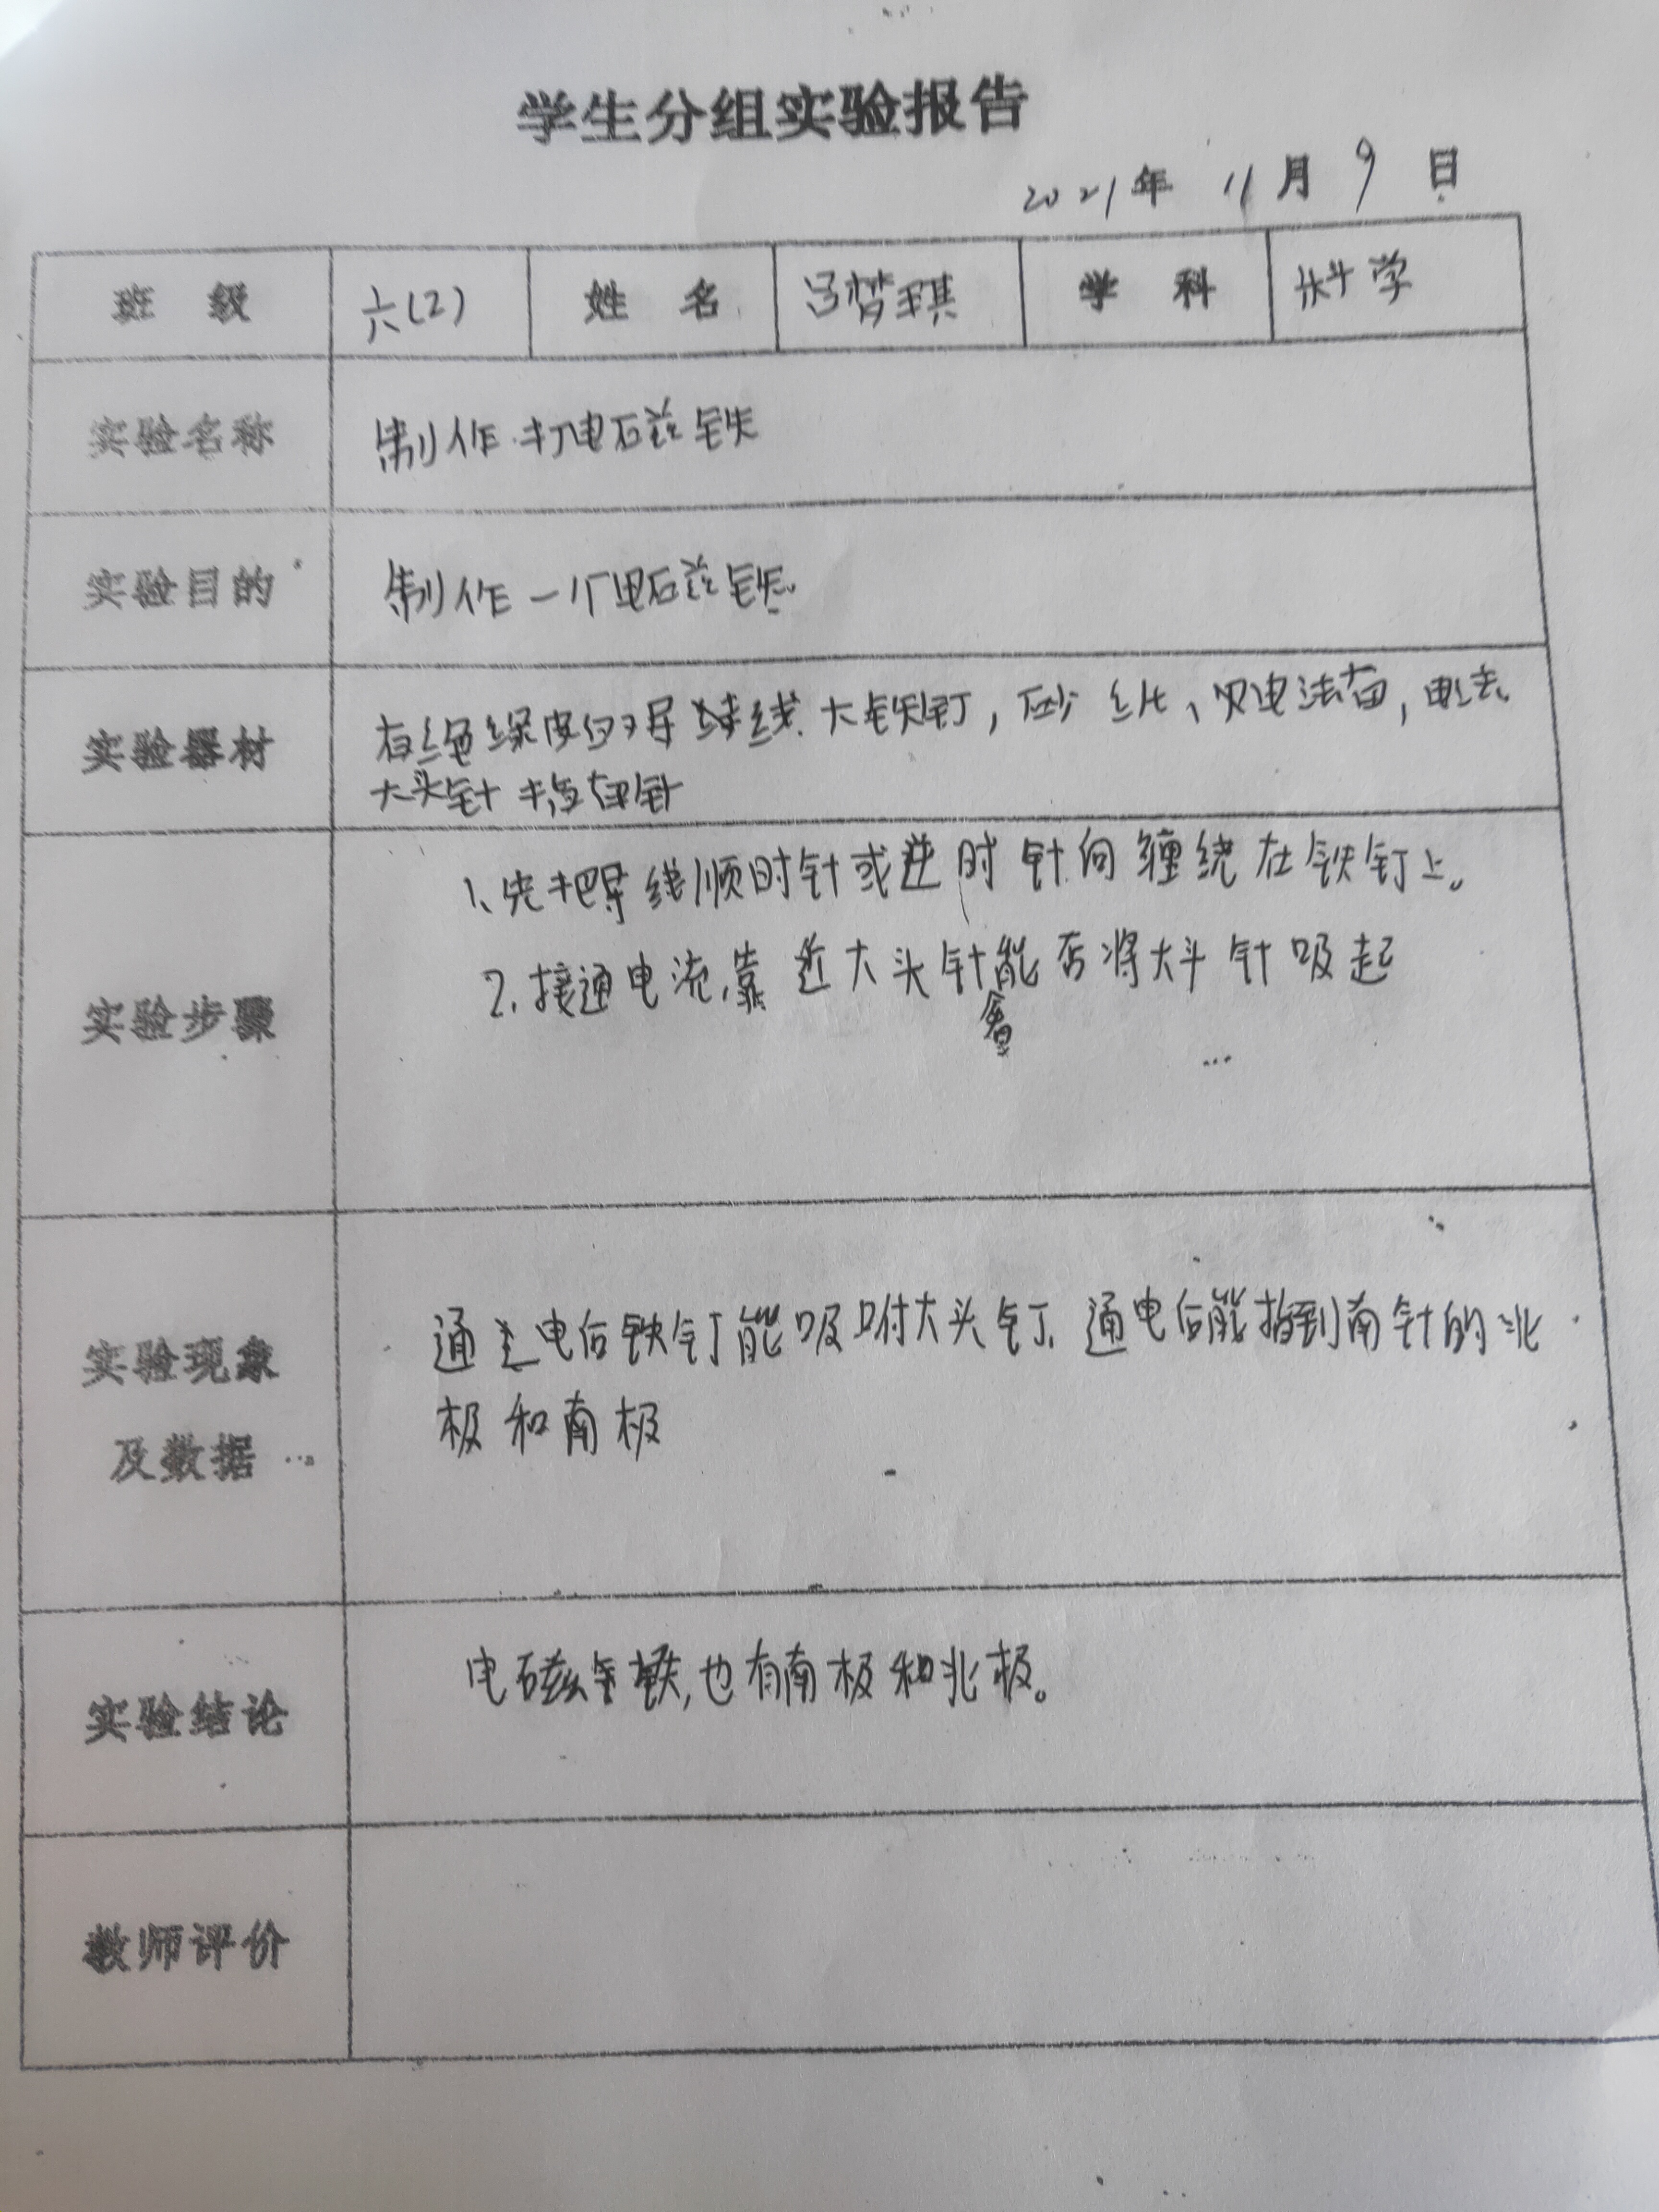 学生分组实验报告
2021年 11月 9日
班 级 六(2) 姓 名 吕梦琪 学 科 科学
实验名称 制作 电磁铁
实验目的 制作一个电磁铁
实验器材 有绝缘皮的导线 大铁钉，砂纸、电池
大头针 指南针
实验步骤
1、先把导线顺时针或逆时针向缠绕在铁钉上。
2.接通电流,靠近大头针能否将大头针吸起
实验现象
及数据
通 电后铁钉能吸附大头钉.通电后能指到南针的北
极和南极
实验结论 电磁铁,也有南极和北极。
教师评价